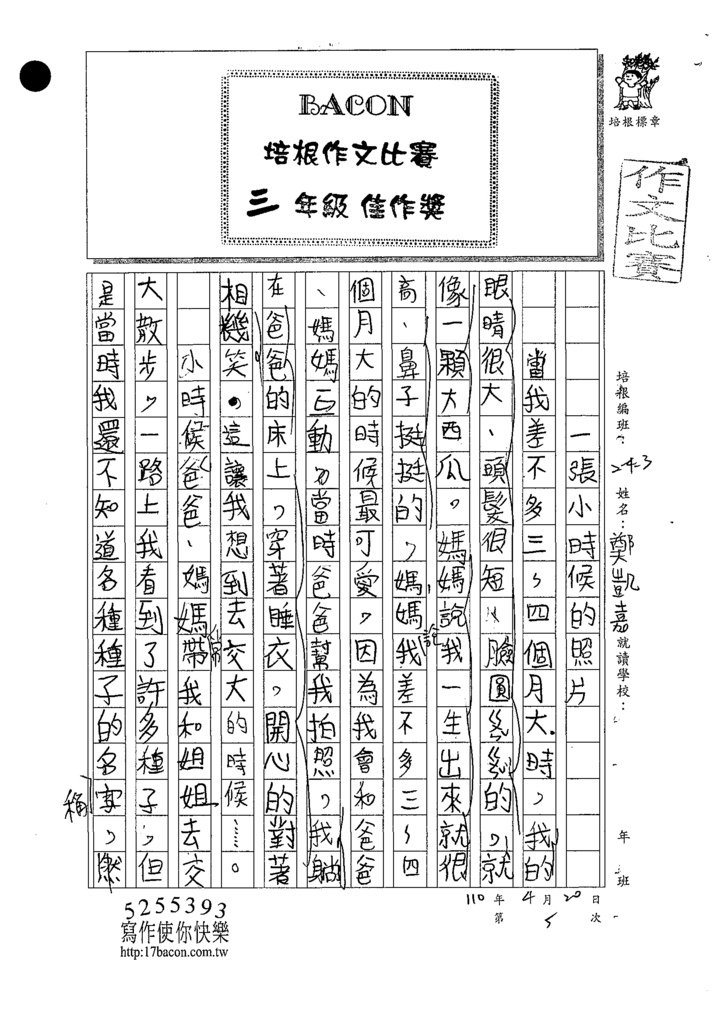 BACON
培根作文比賽
三年級 佳作獎
培根標章
作文比賽
培根編班：243
姓名：鄭凱嘉
就讀學校：
年
班
一張小時候的照片
當我差不多三、四個月大時，我的
眼睛很大、頭髮很短、臉圓圓的，就
像一顆大西瓜。媽媽說我一生出來就很
高、鼻子挺挺的，媽媽說我差不多三、四
個月大的時候最可愛，因為我會和爸爸
、媽媽互動，當時爸爸幫我拍照，我躺
在爸爸的床上，穿著睡衣，開心的對著
相機笑。這讓我想到去交大的時候……。
小時候爸爸、媽媽常帶我和姐姐去交
大散步，一路上我看到了許多種子，但
是當時我還不知道各種種子的名稱，然
110年4月20日
第5次
5255393
寫作使你快樂
http:17bacon.com.tw